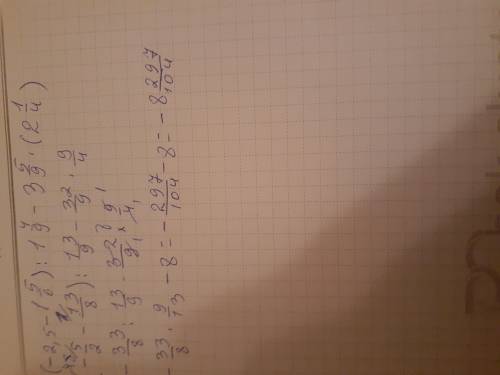 (-2,5 - 1 5/8) : 1 4/9 - 3 5/9 · (2 1/4)
- 5/2 - 13/8) : 13/9 - 32/9 · 9/4
- 33/8 : 13/9 - 32/9 × 9/4
- 33/8 · 9/13 - 8 = - 297/104 - 8 = - 8 297/104